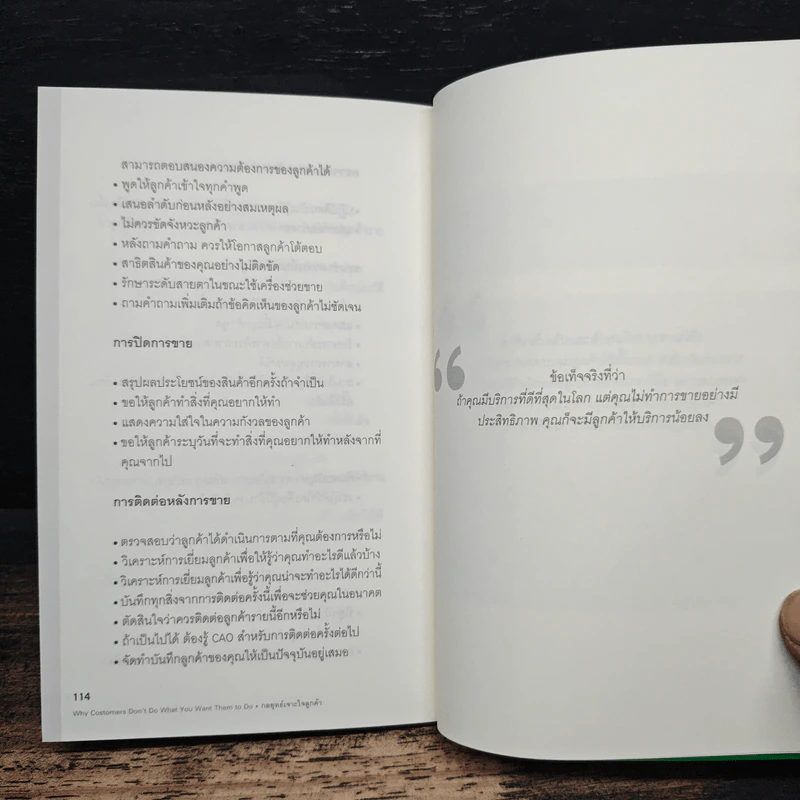 สามารถตอบสนองความต้องการของลูกค้าได้
• พูดให้ลูกค้าเข้าใจทุกคำพูด
• เสนอลำดับก่อนหลังอย่างสมเหตุผล
• ไม่ควรขัดจังหวะลูกค้า
• หลังถามคำถาม ควรให้โอกาสลูกค้าโต้ตอบ
• สาธิตสินค้าของคุณอย่างไม่ติดขัด
• รักษาระดับสายตาในขณะใช้เครื่องช่วยขาย
• ถามคำถามเพิ่มเติมถ้าข้อคิดเห็นของลูกค้าไม่ชัดเจน
การปิดการขาย
• สรุปผลประโยชน์ของสินค้าอีกครั้งถ้าจำเป็น
• ขอให้ลูกค้าทำสิ่งที่คุณอยากให้ทำ
• แสดงความใส่ใจในความกังวลของลูกค้า
• ขอให้ลูกค้าระบุวันที่จะทำสิ่งที่คุณอยากให้ทำหลังจากที่
คุณจากไป
การติดต่อหลังการขาย
• ตรวจสอบว่าลูกค้าได้ดำเนินการตามที่คุณต้องการหรือไม่
• วิเคราะห์การเยี่ยมลูกค้าเพื่อให้รู้ว่าคุณทำอะไรดีแล้วบ้าง
• วิเคราะห์การเยี่ยมลูกค้าเพื่อรู้ว่าคุณน่าจะทำอะไรได้ดีกว่านี้
• บันทึกทุกสิ่งจากการติดต่อครั้งนี้เพื่อจะช่วยคุณในอนาคต
• ตัดสินใจว่าควรติดต่อลูกค้ารายนี้อีกหรือไม่
• ถ้าเป็นไปได้ ต้องรู้ CAO สำหรับการติดต่อครั้งต่อไป
• จัดทำบันทึกลูกค้าของคุณให้เป็นปัจจุบันอยู่เสมอ
114
Why Costomers Don't Do What You Want Them to Do • กลยุทธ์เจาะใจลูกค้า
“
ข้อเท็จจริงที่ว่า
ถ้าคุณมีบริการที่ดีที่สุดในโลก แต่คุณไม่ทำการขายอย่างมี
ประสิทธิภาพ คุณก็จะมีลูกค้าให้บริการน้อยลง
”